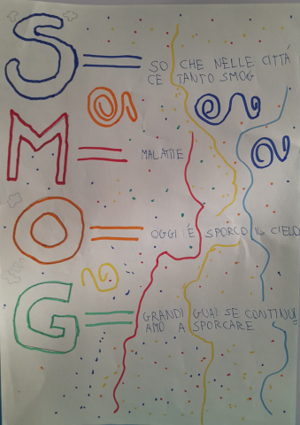 S = SO CHE NELLE CITTÁ
CE TANTO SMOG
M = MALATTIE
O = OGGI É SPORCO IL CIELO
G = GRANDI GUAI SE CONTINUI
AMO A SPORCARE